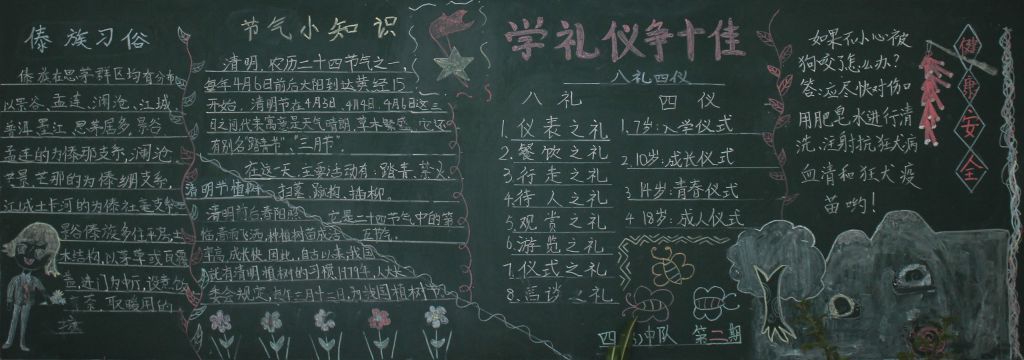 傣族习俗
傣族在思茅群区均有分布
以景谷、孟连、澜沧、江城
普洱墨江思茅居多，景谷
孟连的为傣那支系，澜沧
的为傣绷支系，
江城土卡河的为傣
景谷傣族多住平房，土
木结构，以茅草或瓦
取暖用的
节气小知识
清明，农历二十四节气之一，
每年4月6日前后太阳到达黄经15
开始，清明节在4月3日、4月4日、4月6日这三
日之间代表寓意是天气晴朗，草木繁盛，它还
有别名"踏青节"，"三月节"。
在这天，主要活动有：踏青、禁火、
扫墓、蹴鞠、插柳。
清明节植树
清明前后春阳照
它是二十四节气中的第
五节。
率高，成长快，因此，自古以来，我国
就有清明植树的习惯，1979年，人大
委会规定，每年三月十二日，为我国植树节
学礼仪争十佳
八礼四仪
八礼
1.仪表之礼
2.餐饮之礼
3.行走之礼
4.待人之礼
5.观赏之礼
6.游览之礼
7.仪式之礼
8.言谈之礼
四仪
1.7岁：入学仪式
2.10岁：成长仪式
3.14岁：青春仪式
4.18岁：成人仪式
四
中队
第二期
如果不小心被
狗咬了怎么办？
答：应尽快对伤口
用肥皂水进行清
洗、注射抗狂犬病
血清和狂犬疫
苗哟！
健康安全